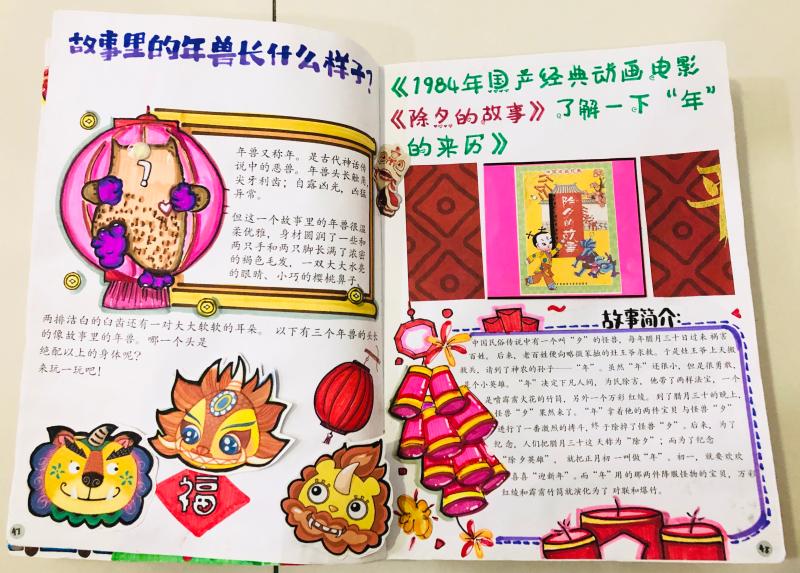 故事里的年兽长什么样子?
年兽又称年。是古代神话传
说中的恶兽。年兽头长触角,
尖牙利齿;自露凶光,凶猛
异常。
但这一个故事里的年兽很温
柔优雅,身材圆润了一些和
两只手和两只脚长满了浓密
的褐色毛发,一双大大水亮
的眼睛、小巧的樱桃鼻子、
两排洁白的臼齿还有一对大大软软的耳朵。以下有三个年兽的头长
的像故事里的年兽。哪一个头是
绝配以上的身体呢?
来玩一玩吧!
福
47
《1984年国产经典动画电影
《除夕的故事》了解一下“年”
的来历》
除夕的故事
故事简介:
中国民俗传说中有一个叫“夕”的怪兽,每年腊月三十日过来祸害
百姓。后来,老百姓便向略微笨拙的灶王爷求救。于是灶王爷上天搬
救兵,请到了神农的孙子——“年”。虽然“年”还很小,但是很勇敢,
是个小英雄。“年”决定下凡人间,为民除害,他带了两样法宝,一个
是喷霹雳火花的竹筒,另外一个万彩红绫。到了腊月三十的晚上,
怪兽“夕”果然来了。“年”拿着他的两件宝贝与怪兽“夕”
进行了一番激烈的搏斗,终于除掉了怪兽“夕”。后来,为了
纪念,人们把腊月三十这天称为“除夕”,而为了纪念
“除夕英雄”,就把正月初一叫做“年”。初一,就要欢欢
喜喜“迎新年”。而“年”用的那两件降服怪物的宝贝,万彩
红绫和霹雳竹筒就演化为了对联和爆竹。
48